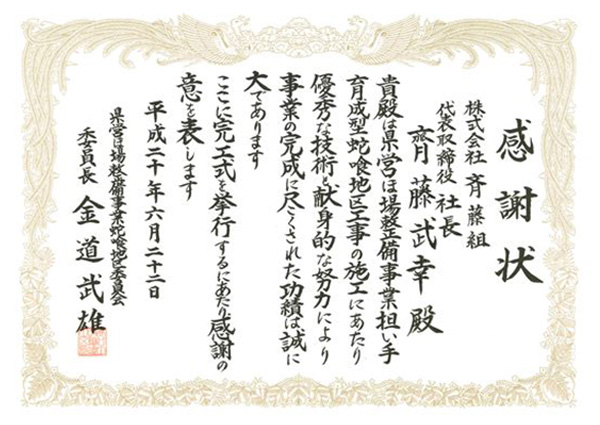 感謝状
株式会社 斉藤組
代表取締役 社長
齊藤武幸殿
貴殿は県営ほ場整備事業担い手
育成型蛇喰地区工事の施工にあたり
優秀な技術と献身的な努力により
事業の完成に尽くされた功績は誠に
大であります
ここに完工式を挙行するにあたり感謝の
意を表します
平成二十年六月二十二日
県営ほ場整備事業蛇喰地区委員会
委員長 金道武雄